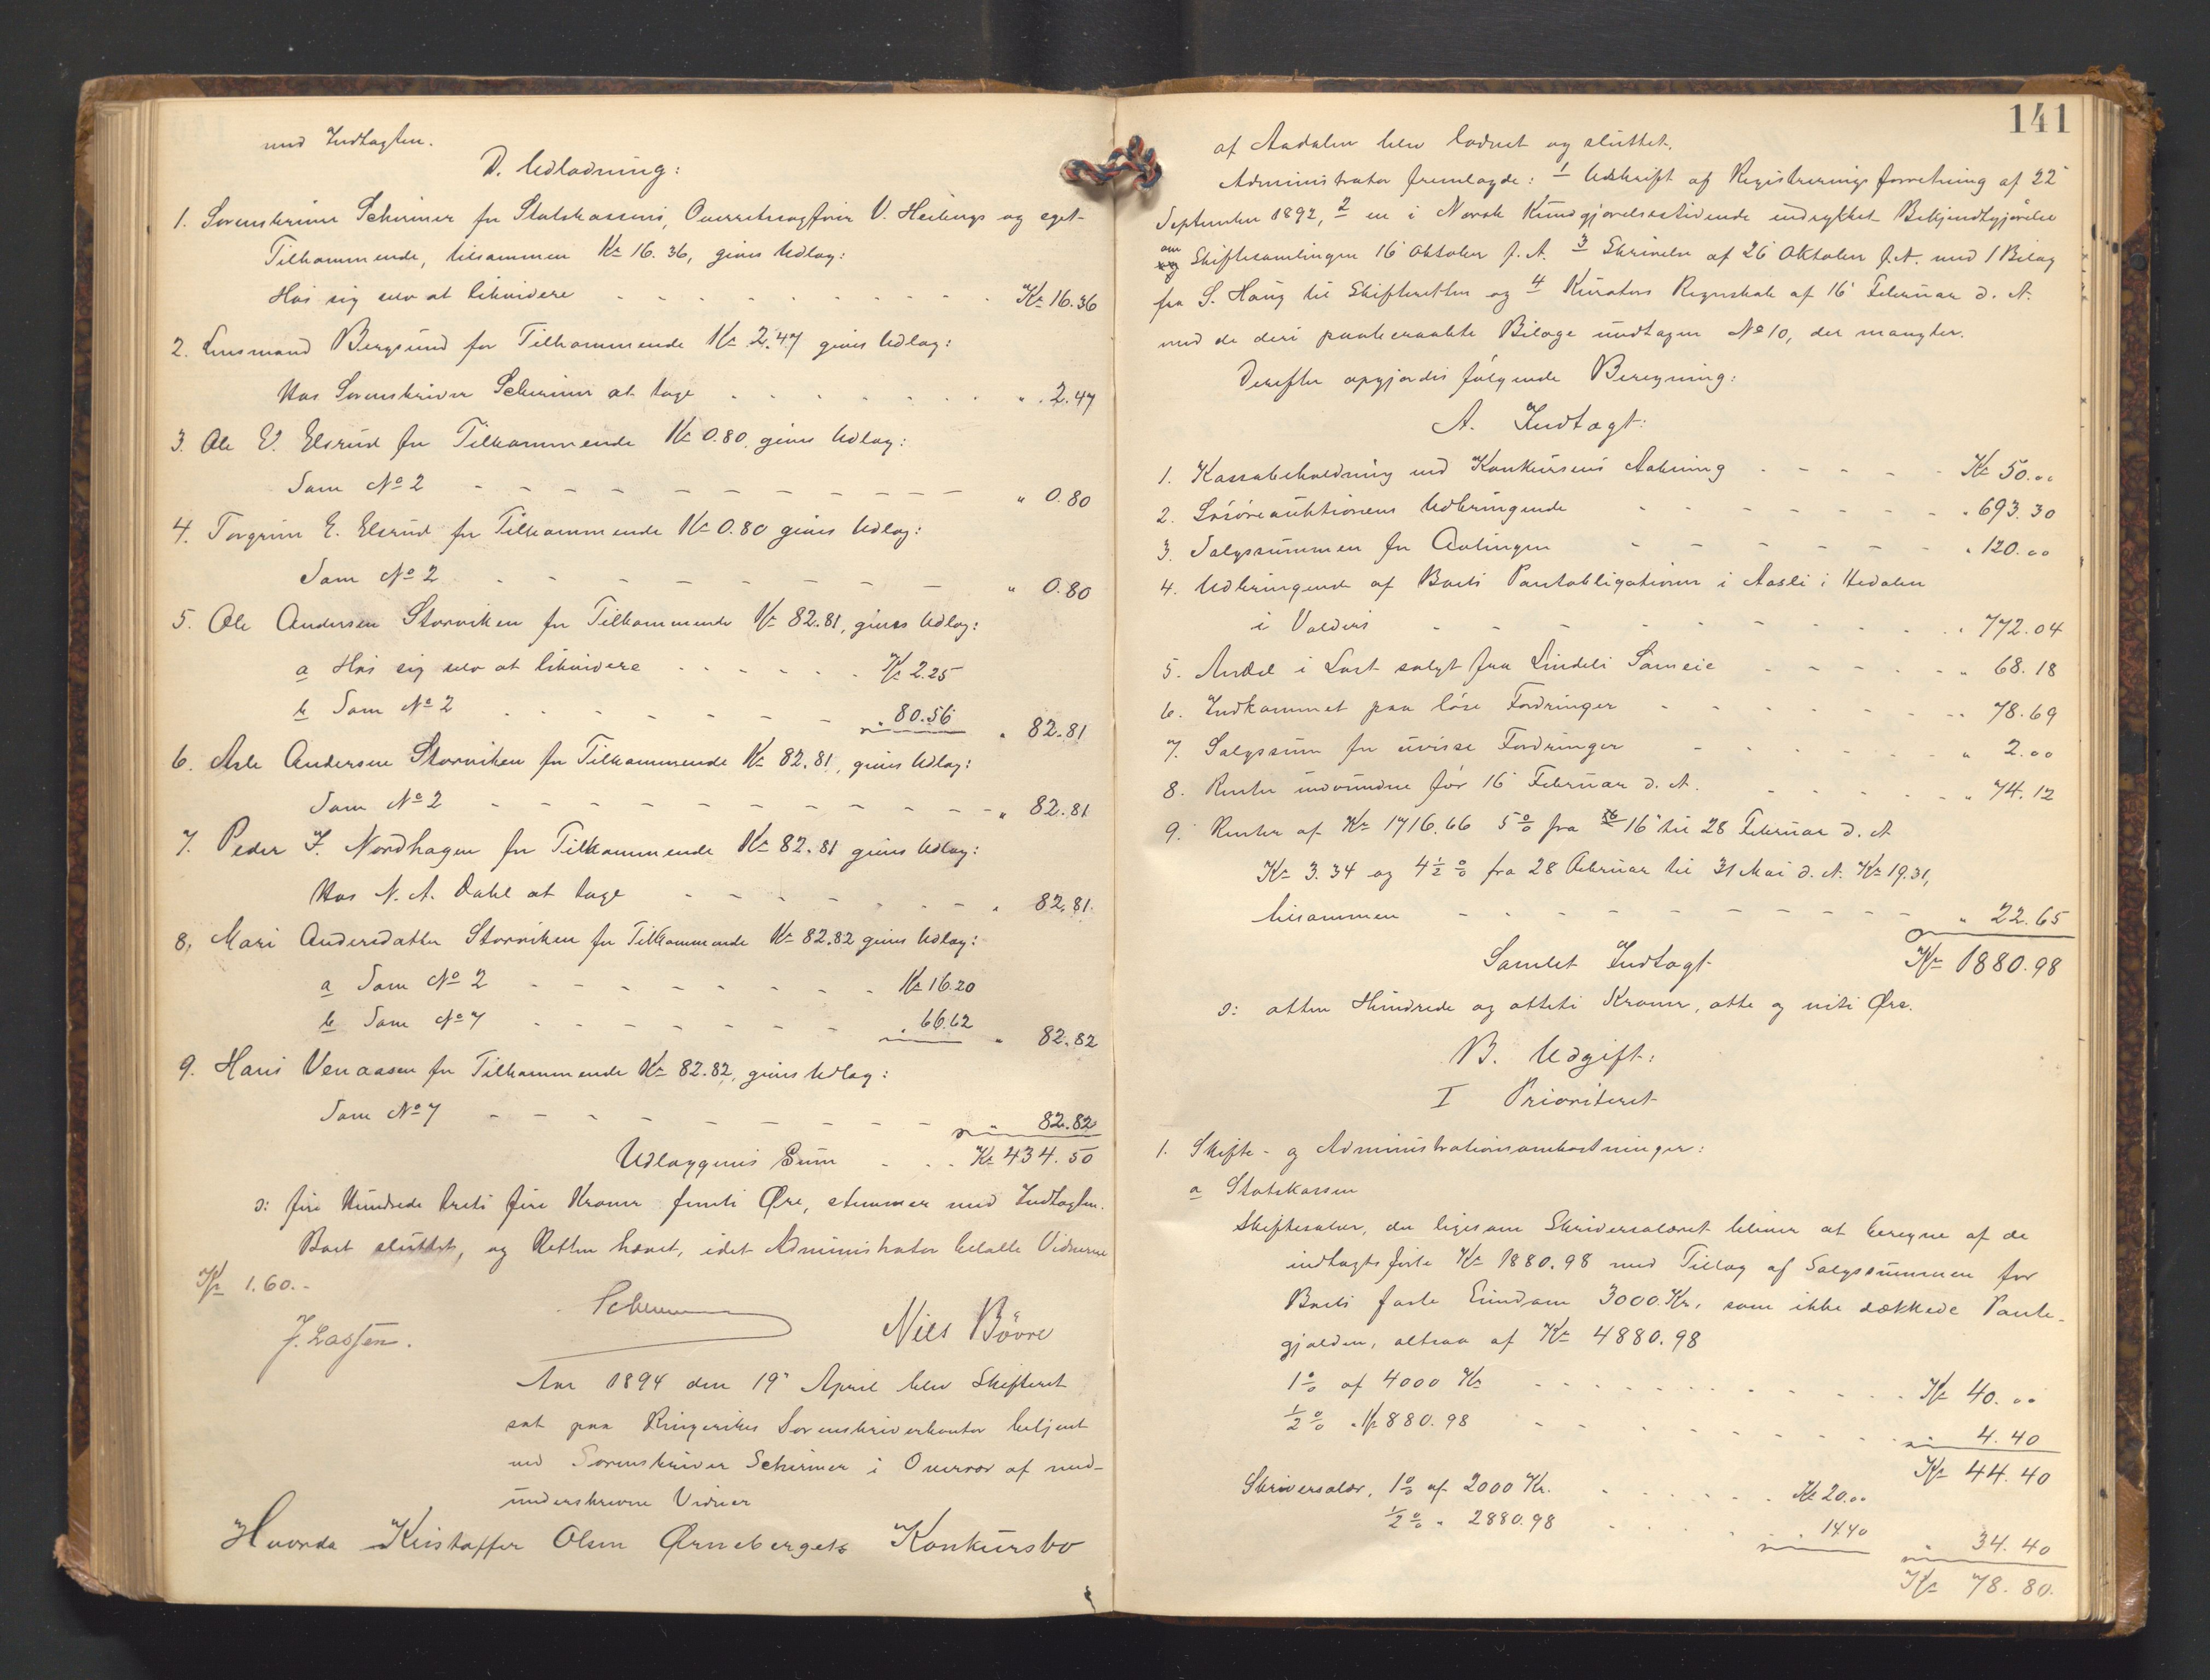 med Indtægten.
D. Udlodning:
1. Sorenskriver Schirmer for Statskassens, Overretssagfører V. Heibergs og eget
Tilkommende, tilsammen Kr 16.36, gives Udlæg:
Hos sig selv at likvidere Kr 16.36
2. Lensmand Bergsund for Tilkommende Kr 2.47 gives Udlæg:
Hos Sorenskriver Schirmer at tage " 2.47
3. Ole E. Elsrud for Tilkommende Kr 0.80, gives Udlæg:
Som No 2 " 0.80
4. Torgrim E. Elsrud for Tilkommende Kr 0.80 gives Udlæg:
Som No 2 " 0.80
5. Ole Andersen Storviken for Tilkommende Kr 82.81, gives Udlæg:
a Hos sig selv at likvidere Kr 2.25
b Som No 2 " 80.56 " 82.81
6. Asle Andersen Storviken for Tilkommende Kr 82.81, gives Udlæg:
Som No 2 " 82.81
7. Peder J. Nordhagen for Tilkommende Kr 82.81 gives Udlæg:
Hos N. A. Dahl at tage " 82.81.
8. Mari Andersdatter Storviken for Tilkommende Kr 82.82 gives Udlæg:
a Som No 2 Kr 16.20
b Som No 7 " 66.62 " 82.82
9. Hans Venaasen for Tilkommende Kr 82.82, gives Udlæg:
Som No 7 " 82.82
Udlæggenes Sum Kr 434.50
ɔ: fire Hundrede treti fire Kroner femti Øre, stemmer med Indtægten.
Boet sluttet, og Retten hævet, idet Administrator betalte Vidnerne
Kr 1.60.-
Schirmer
J. Lassen. Niels Bövre
Aar 1894 den 19' April blev Skifteret
sat paa Ringerikes Sorenskriverkontor betjent
ved Sorenskriver Schirmer i Overvær af med-
underskrevne Vidner
Hvorda Kristoffer Olsen Ørnebergets Konkursbo
141
af Aadalen blev lodnet og sluttet.
Administrator fremlagde: 1 Udskrift af Registreringsforretning af 22'
September 1892, 2 en i Norsk Kundgjørelsestidende indrykket Bekjendtgjørelse
om Skiftesamlingen 16' Oktober f. A. 3 Skrivelse af 26' Oktober f. A. med 1 Bilag
fra S. Haug til Skifteretten og 4 Kurators Regnskab af 16' Februar d. A.
med de deri paaberaabte Bilage undtagen No 10, der mangler.
Derefter opgjordes følgende Beregning:
A. Indtægt:
1. Kassabeholdning ved Konkursens Aabning Kr 50.00
2. Løsøreauktionens Udbringende " 693.30
3. Salgssummen for Avlingen " 120.00
4. Udbringende af Boets Pantobligationer i Aasli i Hedalen
i Valders " 772.04
5. Andel i Last solgt fra Lindeli Sameie " 68.18
6. Indkommet paa løse Fordringer " 78.69
7. Salgssum for uvisse Fordringer " 2.00
8. Renter indvundne før 16' Februar d. A. " 74.12
9. Renter af Kr 1716.66 5% fra 16' til 28 Februar d. A
Kr 3.34 og 4½% fra 28 Februar til 31 Mai d. A. Kr 19.31,
tilsammen " 22.65
Samlet Indtægt Kr 1880.98
ɔ: atten Hundrede og otteti Kroner, otte og niti Øre.
B. Udgift:
I Prioriteret
1. Skifte- og Administrationsomkostninger:
a Statskassen
Skiftesalær, der ligesom Skriversalæret bliver at beregne af de
indtægtsførte Kr 1880.98 med Tillæg af Salgssummen for
Boets faste Eiendom 3000 Kr, som ikke dækkede Pante-
gjælden, altsaa af Kr 4880.98
1% af 4000 Kr Kr 40.00
½% " Kr 880.98 " 4.40
Kr 44.40
Skriversalær, 1% af 2000 Kr. Kr 20.00
½% " 2880.98 " 14.40 " 34.40
Kr 78.80.